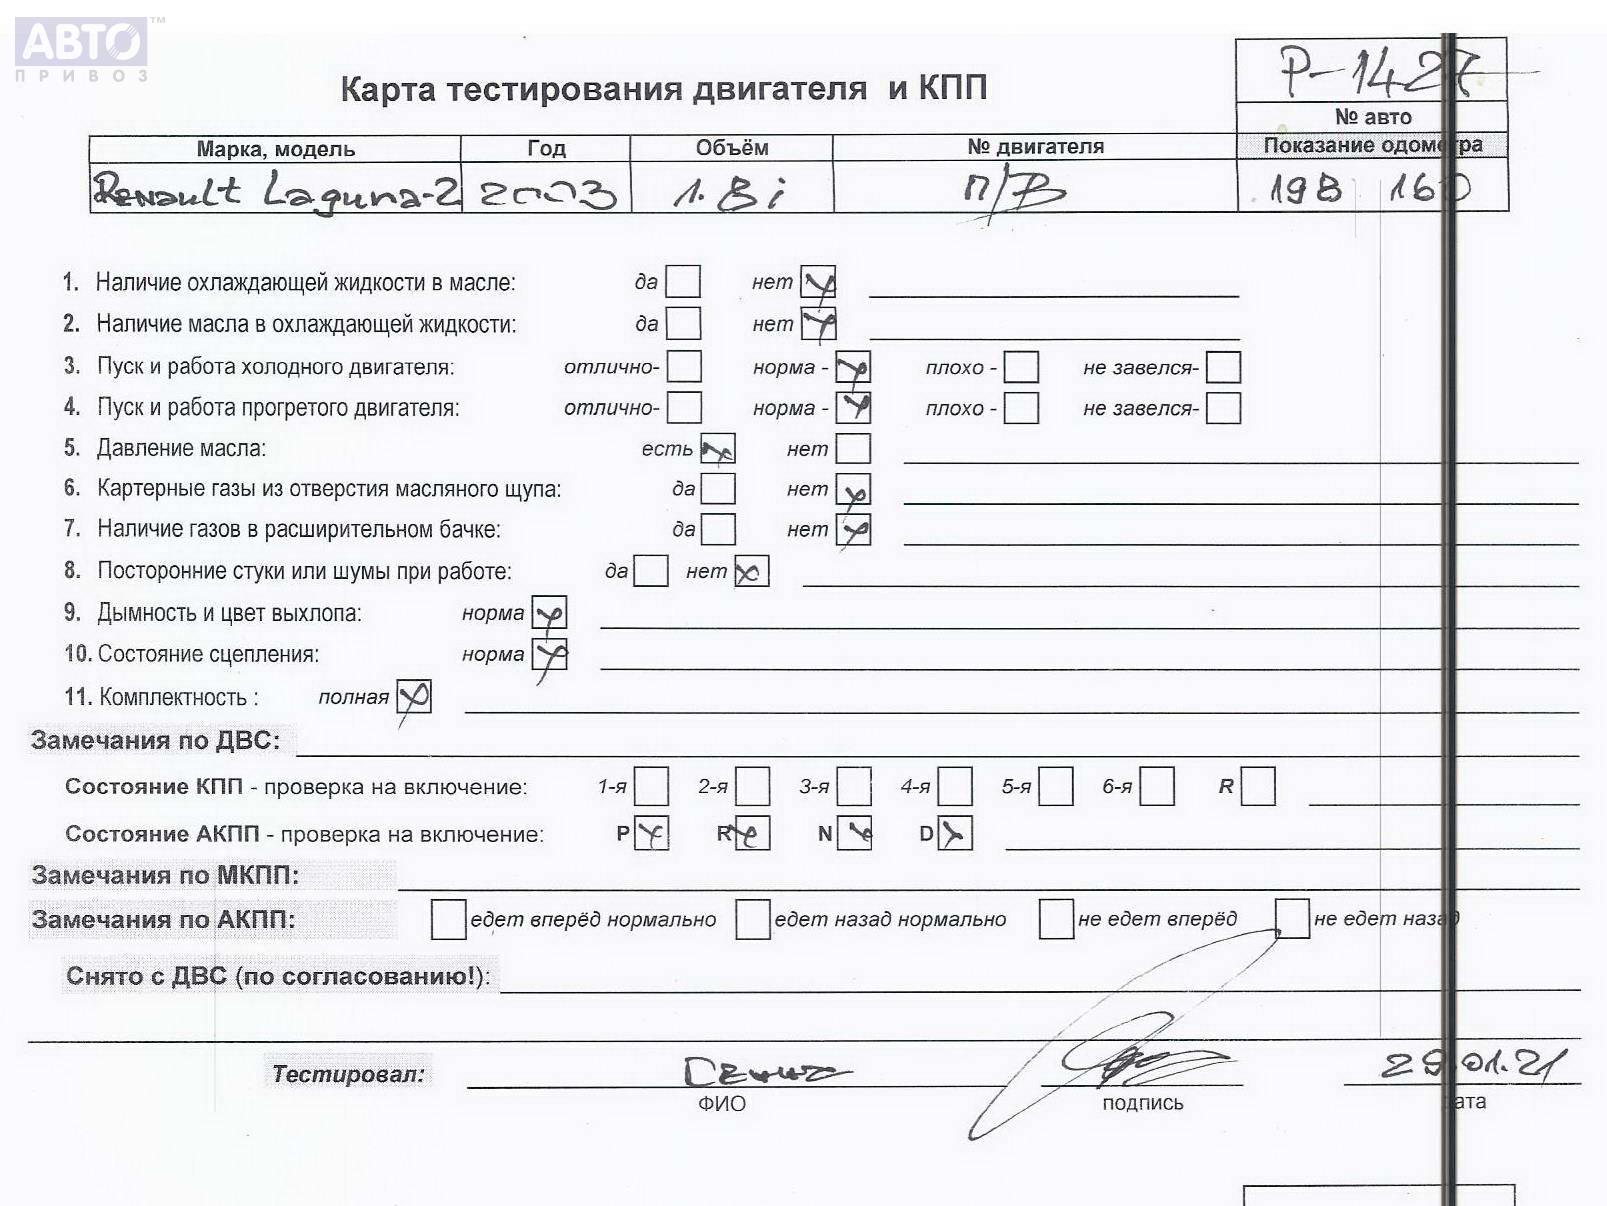 АВТО™
ПРИВОЗ
Р-1427
Карта тестирования двигателя и КПП
№ авто
Марка, модель Год Объём № двигателя Показание одометра
Renault Laguna-2 2003 1.8i П/В 198 160
1. Наличие охлаждающей жидкости в масле: да нет
2. Наличие масла в охлаждающей жидкости: да нет
3. Пуск и работа холодного двигателя: отлично- норма - плохо - не завелся-
4. Пуск и работа прогретого двигателя: отлично- норма - плохо - не завелся-
5. Давление масла: есть нет
6. Картерные газы из отверстия масляного щупа: да нет
7. Наличие газов в расширительном бачке: да нет
8. Посторонние стуки или шумы при работе: да нет
9. Дымность и цвет выхлопа: норма
10. Состояние сцепления: норма
11. Комплектность : полная
Замечания по ДВС:
Состояние КПП - проверка на включение: 1-я 2-я 3-я 4-я 5-я 6-я R
Состояние АКПП - проверка на включение: P R N D
Замечания по МКПП:
Замечания по АКПП: едет вперёд нормально едет назад нормально не едет вперёд не едет назад
Снято с ДВС (по согласованию!):
Тестировал: 29.01.21
ФИО подпись дата